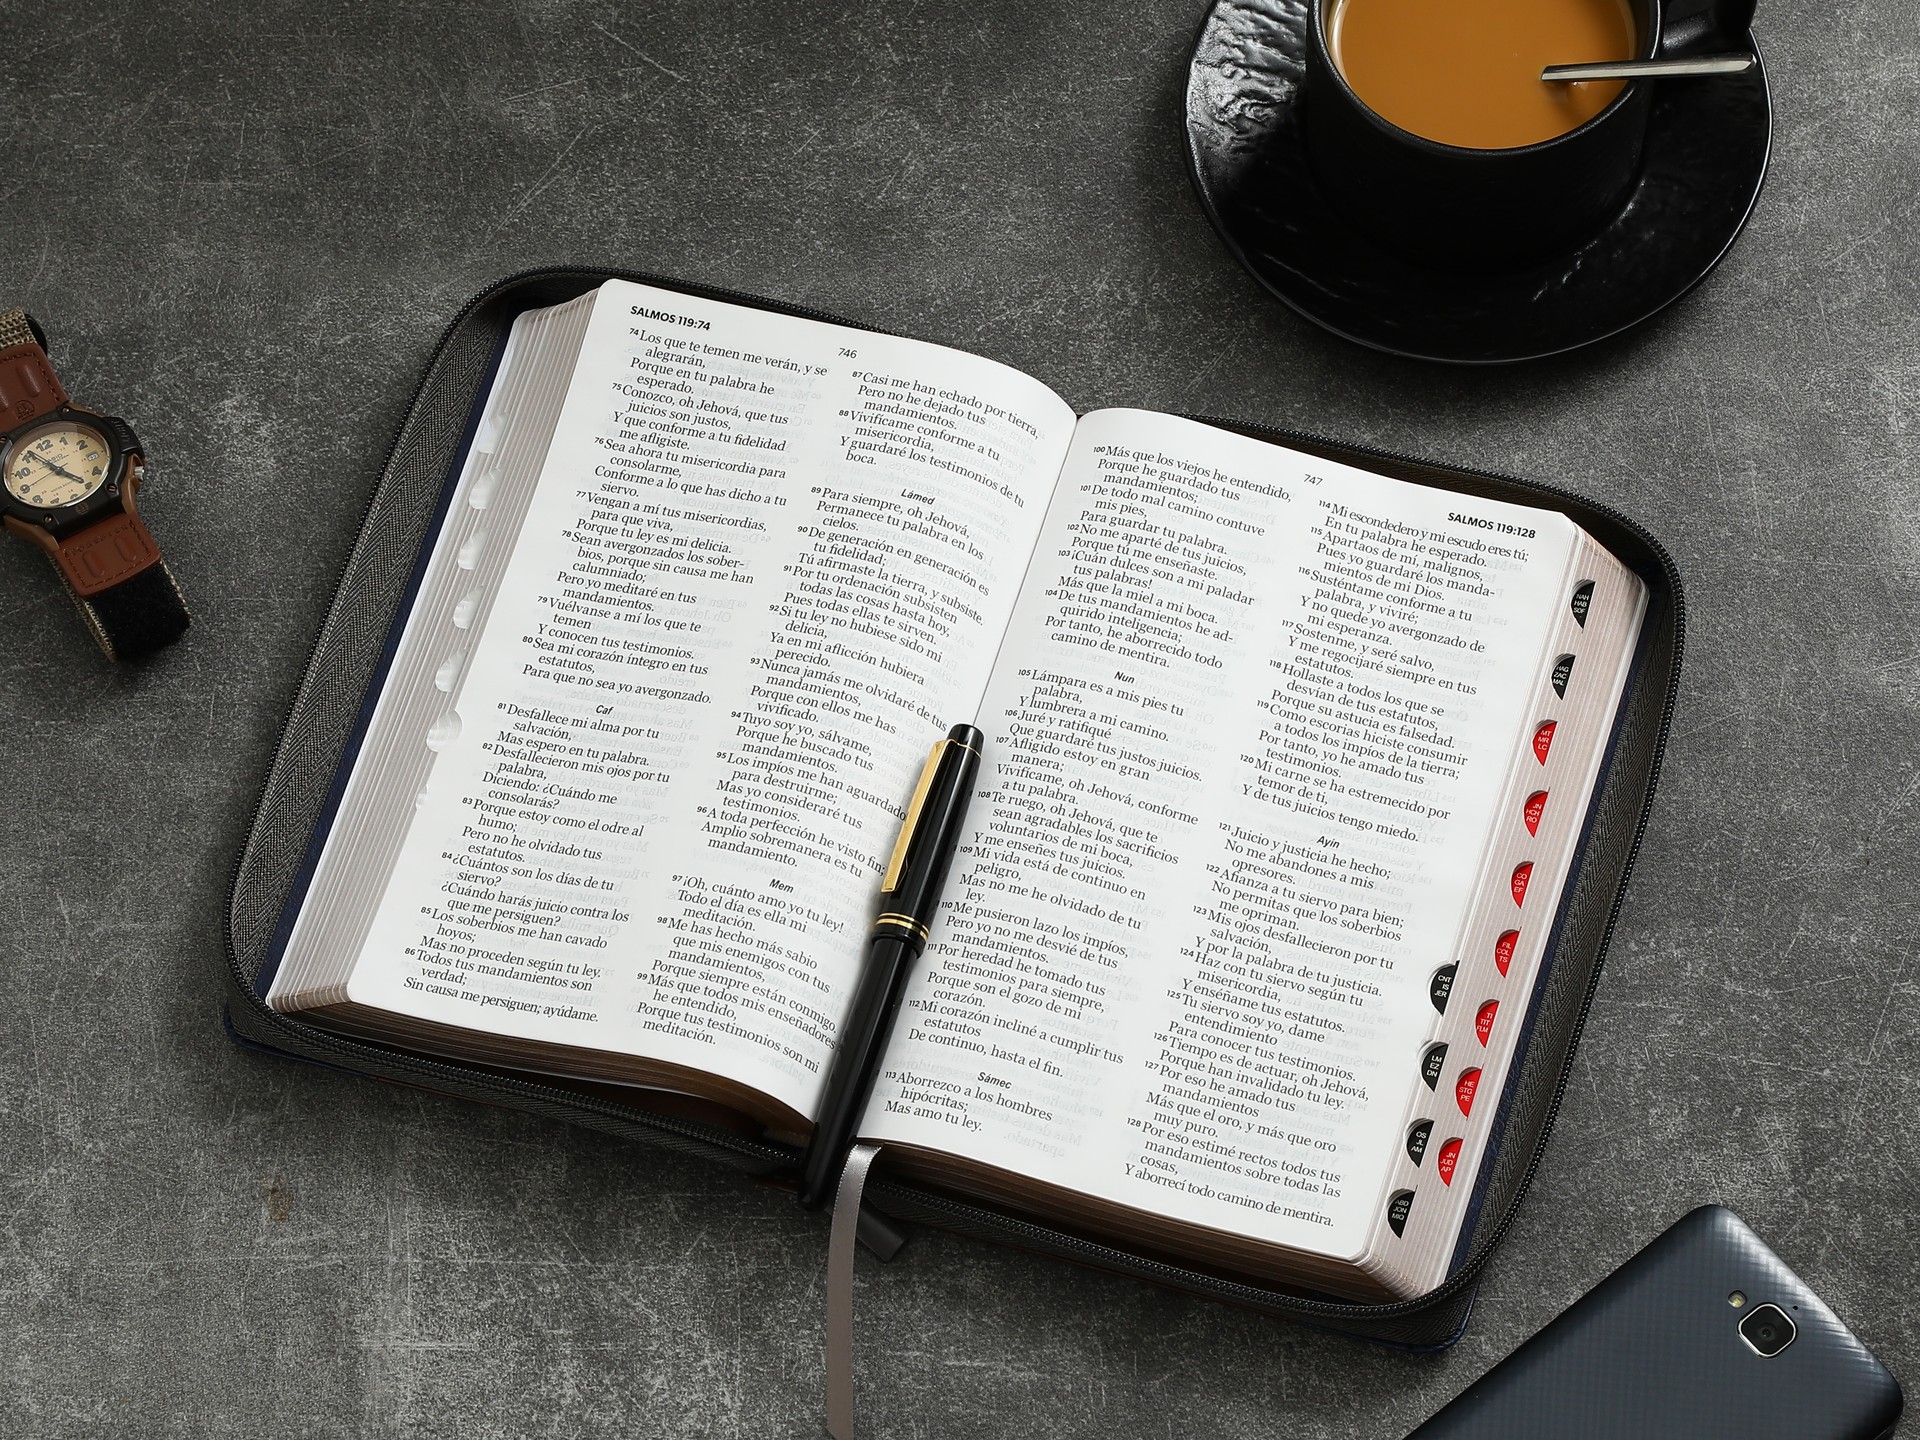 SALMOS 119:74
746
74 Los que te temen me verán, y se
alegrarán,
Porque en tu palabra he
esperado.
75 Conozco, oh Jehová, que tus
juicios son justos,
Y que conforme a tu fidelidad
me afligiste.
76 Sea ahora tu misericordia para
consolarme,
Conforme a lo que has dicho a tu
siervo.
77 Vengan a mí tus misericordias,
para que viva,
Porque tu ley es mi delicia.
78 Sean avergonzados los sober-
bios, porque sin causa me han
calumniado;
Pero yo meditaré en tus
mandamientos.
79 Vuélvanse a mí los que te
temen
Y conocen tus testimonios.
80 Sea mi corazón íntegro en tus
estatutos,
Para que no sea yo avergonzado.
Caf
81 Desfallece mi alma por tu
salvación,
Mas espero en tu palabra.
82 Desfallecieron mis ojos por tu
palabra,
Diciendo: ¿Cuándo me
consolarás?
83 Porque estoy como el odre al
humo;
Pero no he olvidado tus
estatutos.
84 ¿Cuántos son los días de tu
siervo?
¿Cuándo harás juicio contra los
que me persiguen?
85 Los soberbios me han cavado
hoyos;
Mas no proceden según tu ley.
86 Todos tus mandamientos son
verdad;
Sin causa me persiguen; ayúdame.
87 Casi me han echado por tierra,
Pero no he dejado tus
mandamientos.
88 Vivifícame conforme a tu
misericordia,
Y guardaré los testimonios de tu
boca.
Lámed
89 Para siempre, oh Jehová,
Permanece tu palabra en los
cielos.
90 De generación en generación es
tu fidelidad;
Tú afirmaste la tierra, y subsiste.
91 Por tu ordenación subsisten
todas las cosas hasta hoy,
Pues todas ellas te sirven.
92 Si tu ley no hubiese sido mi
delicia,
Ya en mi aflicción hubiera
perecido.
93 Nunca jamás me olvidaré de tus
mandamientos,
Porque con ellos me has
vivificado.
94 Tuyo soy yo, sálvame,
Porque he buscado tus
mandamientos.
95 Los impíos me han aguardado
para destruirme;
Mas yo consideraré tus
testimonios.
96 A toda perfección he visto fin;
Amplio sobremanera es tu
mandamiento.
Mem
97 ¡Oh, cuánto amo yo tu ley!
Todo el día es ella mi
meditación.
98 Me has hecho más sabio
que mis enemigos con tus
mandamientos,
Porque siempre están conmigo.
99 Más que todos mis enseñadores
he entendido,
Porque tus testimonios son mi
meditación.
747
SALMOS 119:128
100 Más que los viejos he entendido,
Porque he guardado tus
mandamientos;
101 De todo mal camino contuve
mis pies,
Para guardar tu palabra.
102 No me aparté de tus juicios,
Porque tú me enseñaste.
103 ¡Cuán dulces son a mi paladar
tus palabras!
Más que la miel a mi boca.
104 De tus mandamientos he ad-
quirido inteligencia;
Por tanto, he aborrecido todo
camino de mentira.
Nun
105 Lámpara es a mis pies tu
palabra,
Y lumbrera a mi camino.
106 Juré y ratifiqué
Que guardaré tus justos juicios.
107 Afligido estoy en gran
manera;
Vivifícame, oh Jehová, conforme
a tu palabra.
108 Te ruego, oh Jehová, que te
sean agradables los sacrificios
voluntarios de mi boca,
Y me enseñes tus juicios.
109 Mi vida está de continuo en
peligro,
Mas no me he olvidado de tu
ley.
110 Me pusieron lazo los impíos,
Pero yo no me desvié de tus
mandamientos.
111 Por heredad he tomado tus
testimonios para siempre,
Porque son el gozo de mi
corazón.
112 Mi corazón incliné a cumplir tus
estatutos
De continuo, hasta el fin.
Sámec
113 Aborrezco a los hombres
hipócritas;
Mas amo tu ley.
114 Mi escondedero y mi escudo eres tú;
En tu palabra he esperado.
115 Apartaos de mí, malignos,
Pues yo guardaré los manda-
mientos de mi Dios.
116 Susténtame conforme a tu
palabra, y viviré;
Y no quede yo avergonzado de
mi esperanza.
117 Sostenme, y seré salvo,
Y me regocijaré siempre en tus
estatutos.
118 Hollaste a todos los que se
desvían de tus estatutos,
Porque su astucia es falsedad.
119 Como escorias hiciste consumir
a todos los impíos de la tierra;
Por tanto, yo he amado tus
testimonios.
120 Mi carne se ha estremecido por
temor de ti,
Y de tus juicios tengo miedo.
Ayin
121 Juicio y justicia he hecho;
No me abandones a mis
opresores.
122 Afianza a tu siervo para bien;
No permitas que los soberbios
me opriman.
123 Mis ojos desfallecieron por tu
salvación,
Y por la palabra de tu justicia.
124 Haz con tu siervo según tu
misericordia,
Y enséñame tus estatutos.
125 Tu siervo soy yo, dame
entendimiento
Para conocer tus testimonios.
126 Tiempo es de actuar, oh Jehová,
Porque han invalidado tu ley.
127 Por eso he amado tus
mandamientos
Más que el oro, y más que oro
muy puro.
128 Por eso estimé rectos todos tus
mandamientos sobre todas las
cosas,
Y aborrecí todo camino de mentira.
NAH
HAB
SOF
HAG
ZAC
MAL
MT
MR
LC
JN
HCH
RO
CO
GA
EF
FIL
COL
TS
TI
TIT
FLM
HE
STG
PE
JN
JUD
AP
CNT
IS
JER
LM
EZ
DN
OS
JL
AM
ABD
JON
MIQ